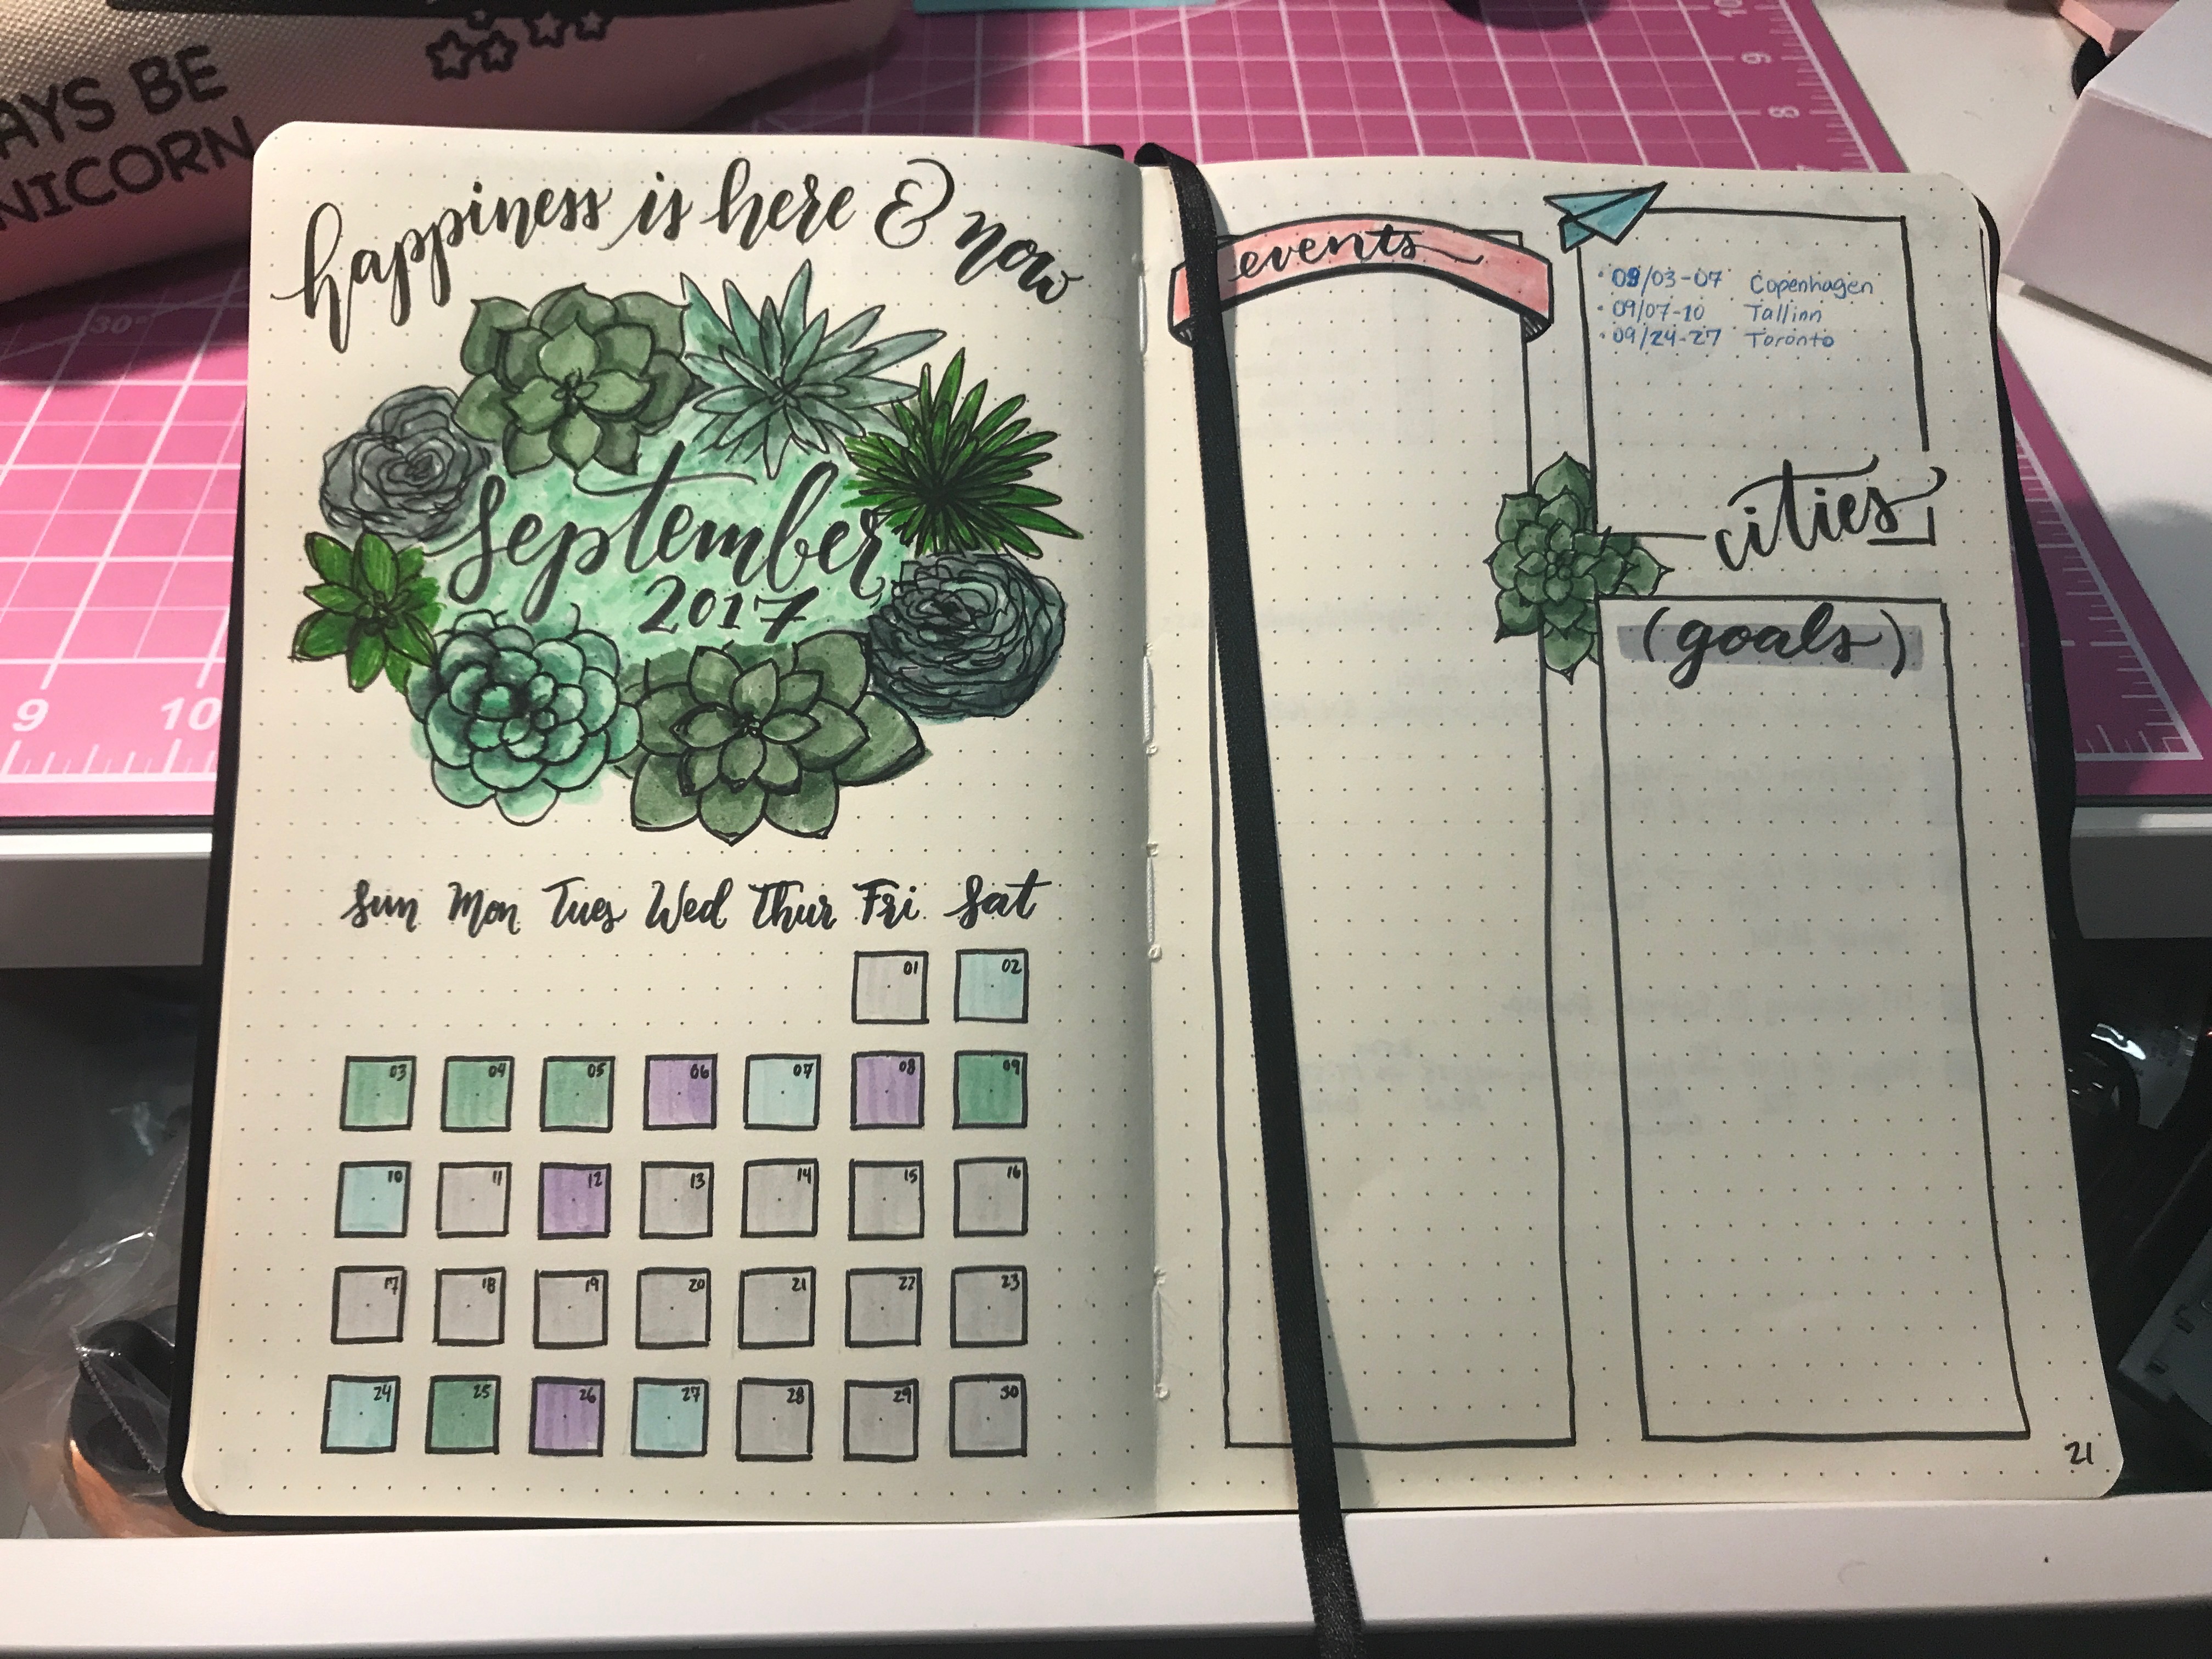 AYS BE
NICORN
happiness is here & now
September
2017
Sun Mon Tues Wed Thur Fri Sat
01 02
03 04 05 06 07 08 09
10 11 12 13 14 15 16
17 18 19 20 21 22 23
24 25 26 27 28 29 30
events
• 09/03-07 Copenhagen
• 09/07-10 Tallinn
• 09/24-27 Toronto
cities
(goals)
21
30°
9 10
10
9
8